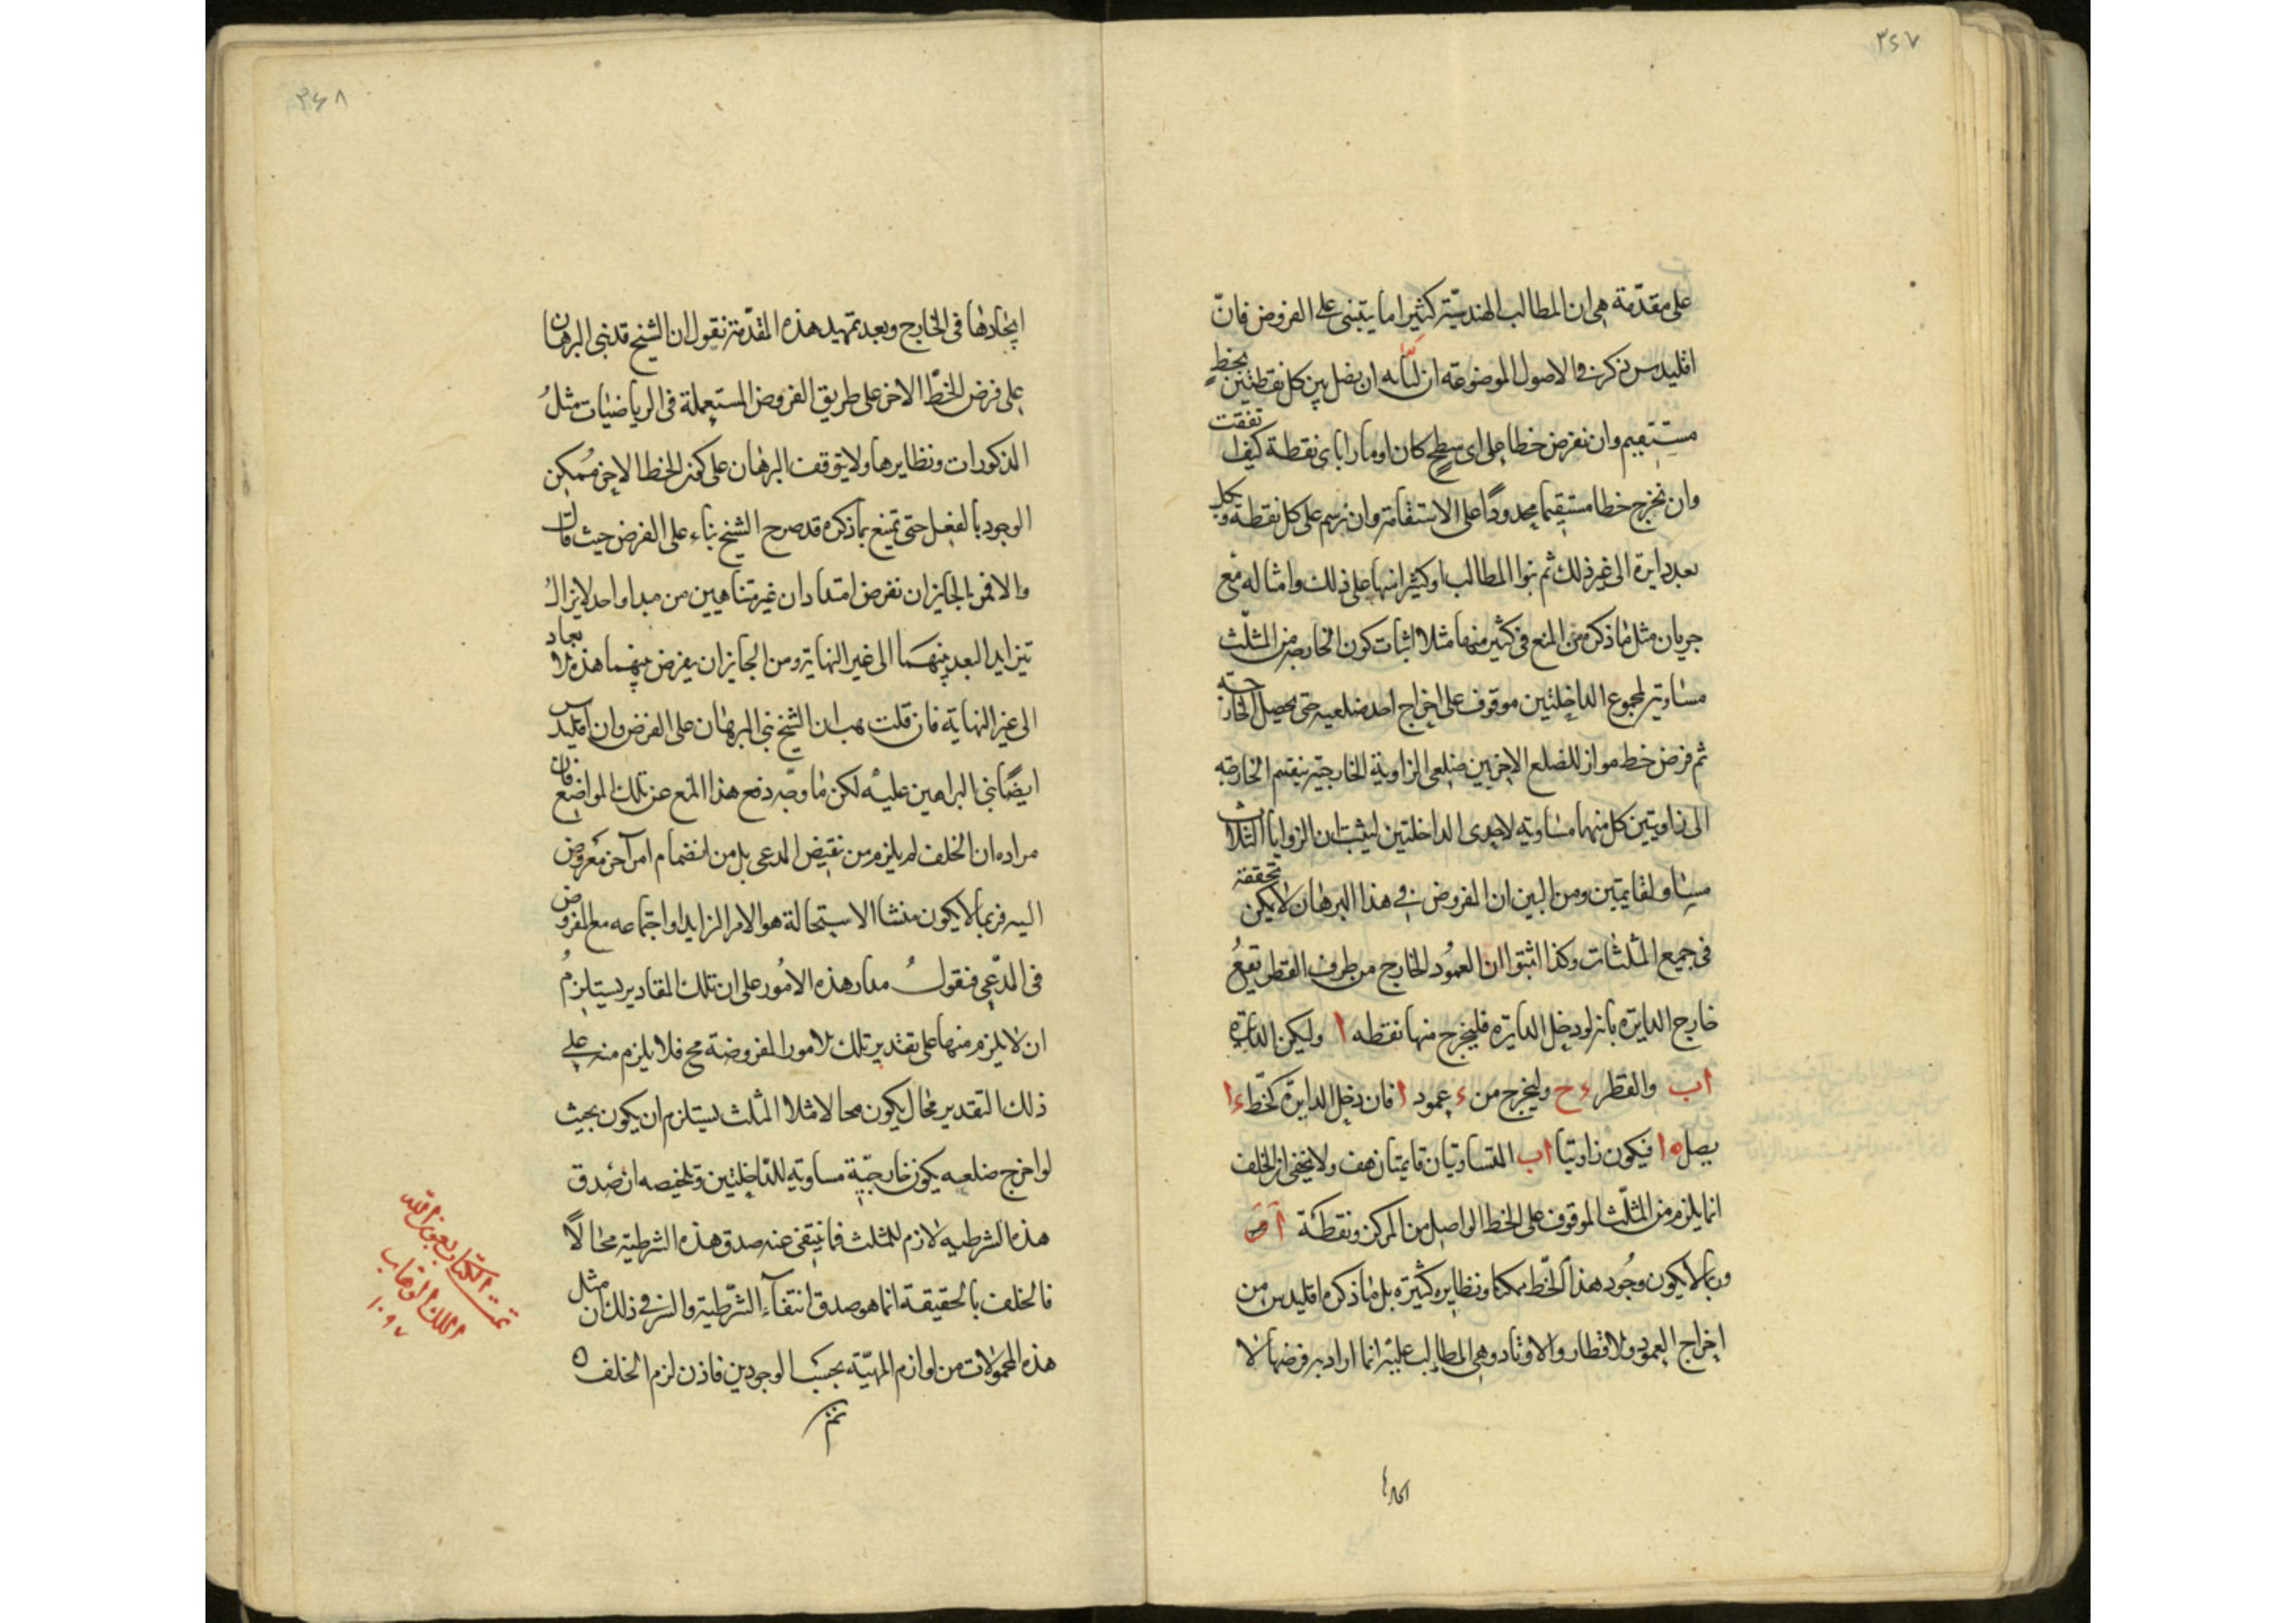 ٣٤٧
على مقدّمة هى ان المطالب الهندسيّة كثيرا ما يبتنى على الفروض فانّ
اقليدس ذكر فى الاصول الموضوعة ان لنا ان نصل بين كل نقطتين بخط
مستقيم وان نفرض خطا على اى سطح كان او مارا باى نقطة كيف اتفقت
وان نخرج خطا مستقيما محدودًا على الاستقامة وان نرسم على كل نقطة وبكل
بعد دايرة الى غير ذلك ثم بنوا المطالب او كثيرا منها على ذلك وامثاله مع
جريان مثل ما ذكره من المنع فى كثير منها مثلا اثبات كون الخارجة من المثلّث
مساوية لمجموع الداخلتين موقوف على اخراج احد ضلعيه حتى يحصل الخارجة
ثم فرض خط مواز للضلع الاخر بين ضلعى الزاوية الخارجيّة يقسم الخارجة
الى زاويتين كل منهما مساوية لاحدى الداخلتين ليثبت ان الزوايا الثلاث
مساو لقايمتين ومن البين ان المفروض فى هذا البرهان لا يمكن تحققه
فى جميع المثلثات وكذا اثبتوا ان العمود الخارج من طرف القطر يقع
خارج الدايرة بانه لو دخل الدايرة فليخرج منها نقطه ا وليكن الدايرة
اب والقطر ء ح وليخرج من ء عمود ا فان دخل الدايرة كخطّ ء ا
يصل ه ا فيكون زاويتا اب المتساويتان قايمتان هف ولا يخفى ان الخلف
انما يلزم من المثلّث الموقوف على الخط الواصل من المركز ونقطة ا
وربما لا يكون وجود هذا الخّط ممكنا ونظايره كثيرة بل ما ذكره اقليدس من
اخراج العمود والاقطار والاوتاد وهى المطالب عليه انما اراد به فرضها لا
ايجادها
٣٤٨
ايجادها فى الخارج وبعد تمهيد هذه المقدّمة نقول ان الشيخ قد بنى البرهان
على فرض الخطّ الاخر على طريق الفروض المستعملة فى الرياضيات مثل
المذكورات ونظايرها ولا يتوقف البرهان على كون الخط الاخر ممكن
الوجود بالفعل حتى تمنع بما ذكره قد صرح الشيخ بناء على الفرض حيث قال
والا فمن الجايز ان نفرض امتدادان غير متناهيين من مبدا واحد لا يزال
يتزايد البعد بينهما الى غير النهاية ومن الجايز ان يفرض بينهما هذه الابعاد
الى غير النهاية فان قلت هب ان الشيخ بنى البرهان على الفرض وان اقليدس
ايضًا بنى البراهين عليه لكن ما وجّه دفع هذا المنع عن تلك المواضع فان
مراده ان الخلف لم يلزم من نقيض المدعى بل من انضمام امر آخر مفروض
اليه فربما لا يكون منشا الاستحالة هو الامر الزايد او اجتماعه مع المفروض
فى المدّعى فنقول مدار هذه الامور على ان تلك المقادير يستلزم
ان لا يلزم منها على تقدير تلك الامور المفروضة مح فلا يلزم منه على
ذلك التقدير محال يكون محالا مثلا المثلث يستلزم ان يكون بحيث
لو اخرج ضلعه يكون خارجيّة مساوية للداخلتين وتلخيصه ان صدق
هذه الشرطيه لازم للمثلث فما ينتفى عنه صدق هذه الشرطية محالاً
فالخلف بالحقيقة انما هو صدق انتفآء الشّرطية والسر فى ذلك ان مثل
هذه المحمولات من لوازم المهيّة بحسب الوجودين فاذن لزم الخلف ه
تم
تمت الكتاب بعون الله
الملك الوهاب
١٠٩٧